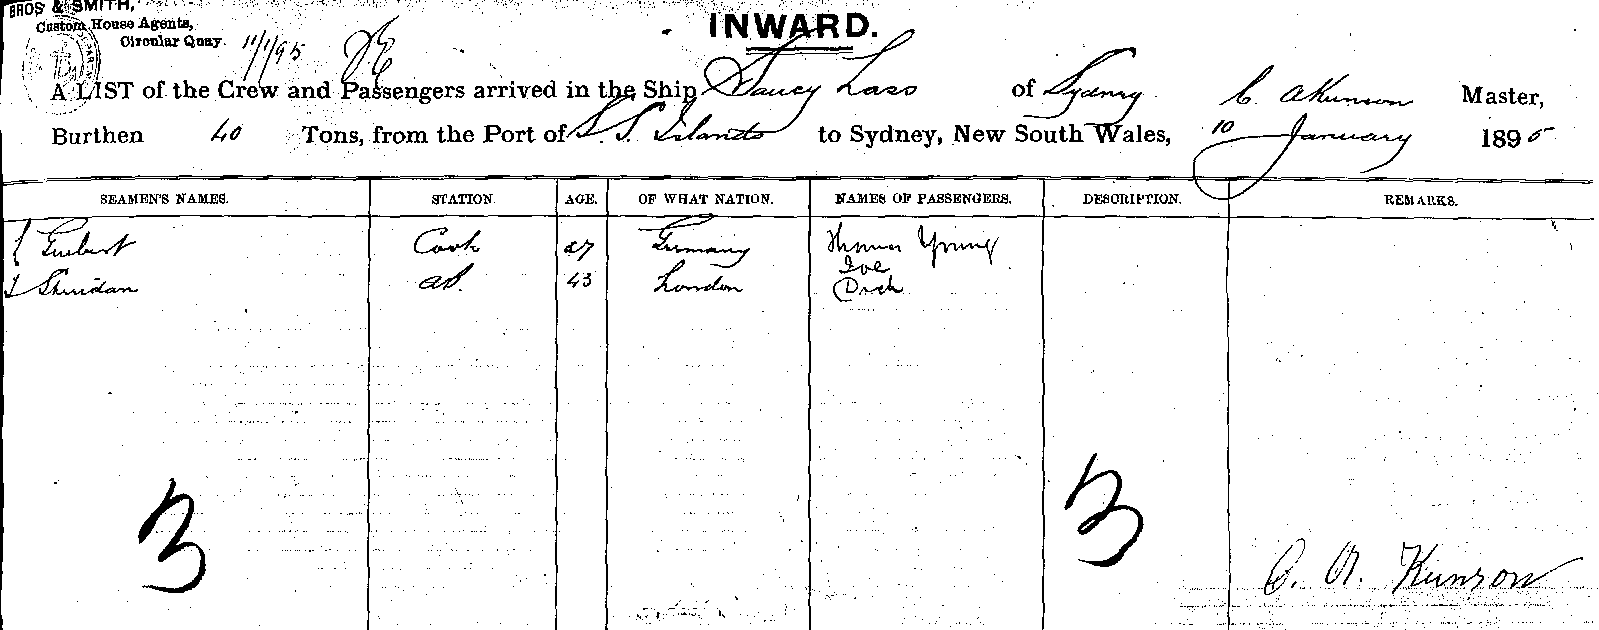 BROS & SMITH,
Custom House Agents,
Circular Quay.
11/1/95
INWARD.
A LIST of the Crew and Passengers arrived in the Ship Saucy Lass of Sydney C. A Kunson Master,
Burthen 40 Tons, from the Port of S. S. Islands to Sydney, New South Wales, 10 January 1895
SEAMEN'S NAMES. STATION. AGE. OF WHAT NATION. NAMES OF PASSENGERS. DESCRIPTION. REMARKS.
Cook 27 Germany Thomas Young
Joe
Sheridan AB. 43 London Dick
3 3
C. A. Kunson